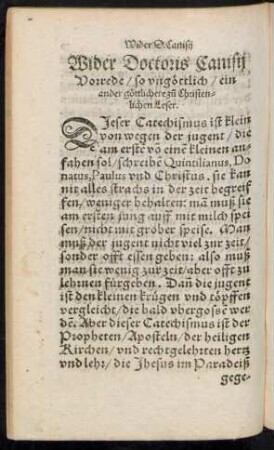 Wider D. Canisij
Wider Doctoris Canisij
Vorrede / so vngöttlich / ein
ander göttlichere zů Christen-
lichen Leser.
DIeser Catechismus ist klein
von wegen der jugent / die
am erstē vō eine kleinen an-
fahen sol / schreibē Quintilianus, Do
natus, Paulus vnd Christus. sie kan
nit alles strachs in der zeit begreif
fen / weniger behalten: mā muß sie
am ersten jung auff mit milch spei
sen / nicht mit grober speise. Man
muß der jugent nicht viel zur zeit /
sonder offt essen geben: also muß
man sie wenig zur zeit / aber offt zu
lehrnen fürgeben. Dañ die jugent
ist den kleinen krügen vnd töpffen
vergleicht / die bald vbergossē wer
dē. Aber dieser Catechismus ist der
Propheten / Aposteln / der heiligen
Kirchen / vnd rechtgelehrten hertz
vnd lehr / die Jhesus im Paradeiß
gege-